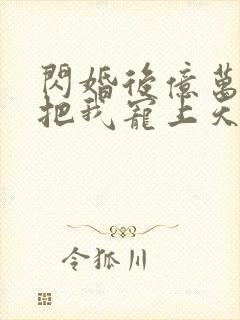 閃婚後億萬
把我寵上天
令狐川